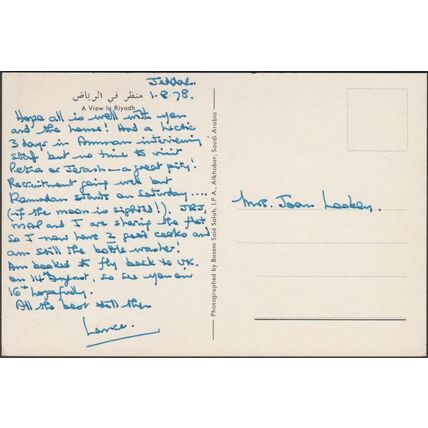 Jeddah.
1.8.78.
منظر في الرياض
A View In Riyadh
Hope all is well with you
and the house! Had a hectic
3 days in Amman interviewing
staff but no time to visit
Petra or Jerash – a great pity!
Recruitment going well but
Ramadan starts on Saturday ....
(if the moon is sighted!). JRJ,
Mal and I are sharing the flat
so I now have 2 good cooks and
am still the bottle washer!
Am booked to fly back to UK.
on 14th August, so see you on
16th hopefully.
All the best till then
Lance
Photographed by Basem Said Salah, I.P.A. Alkhobar, Saudi Arabia
Mrs. Joan